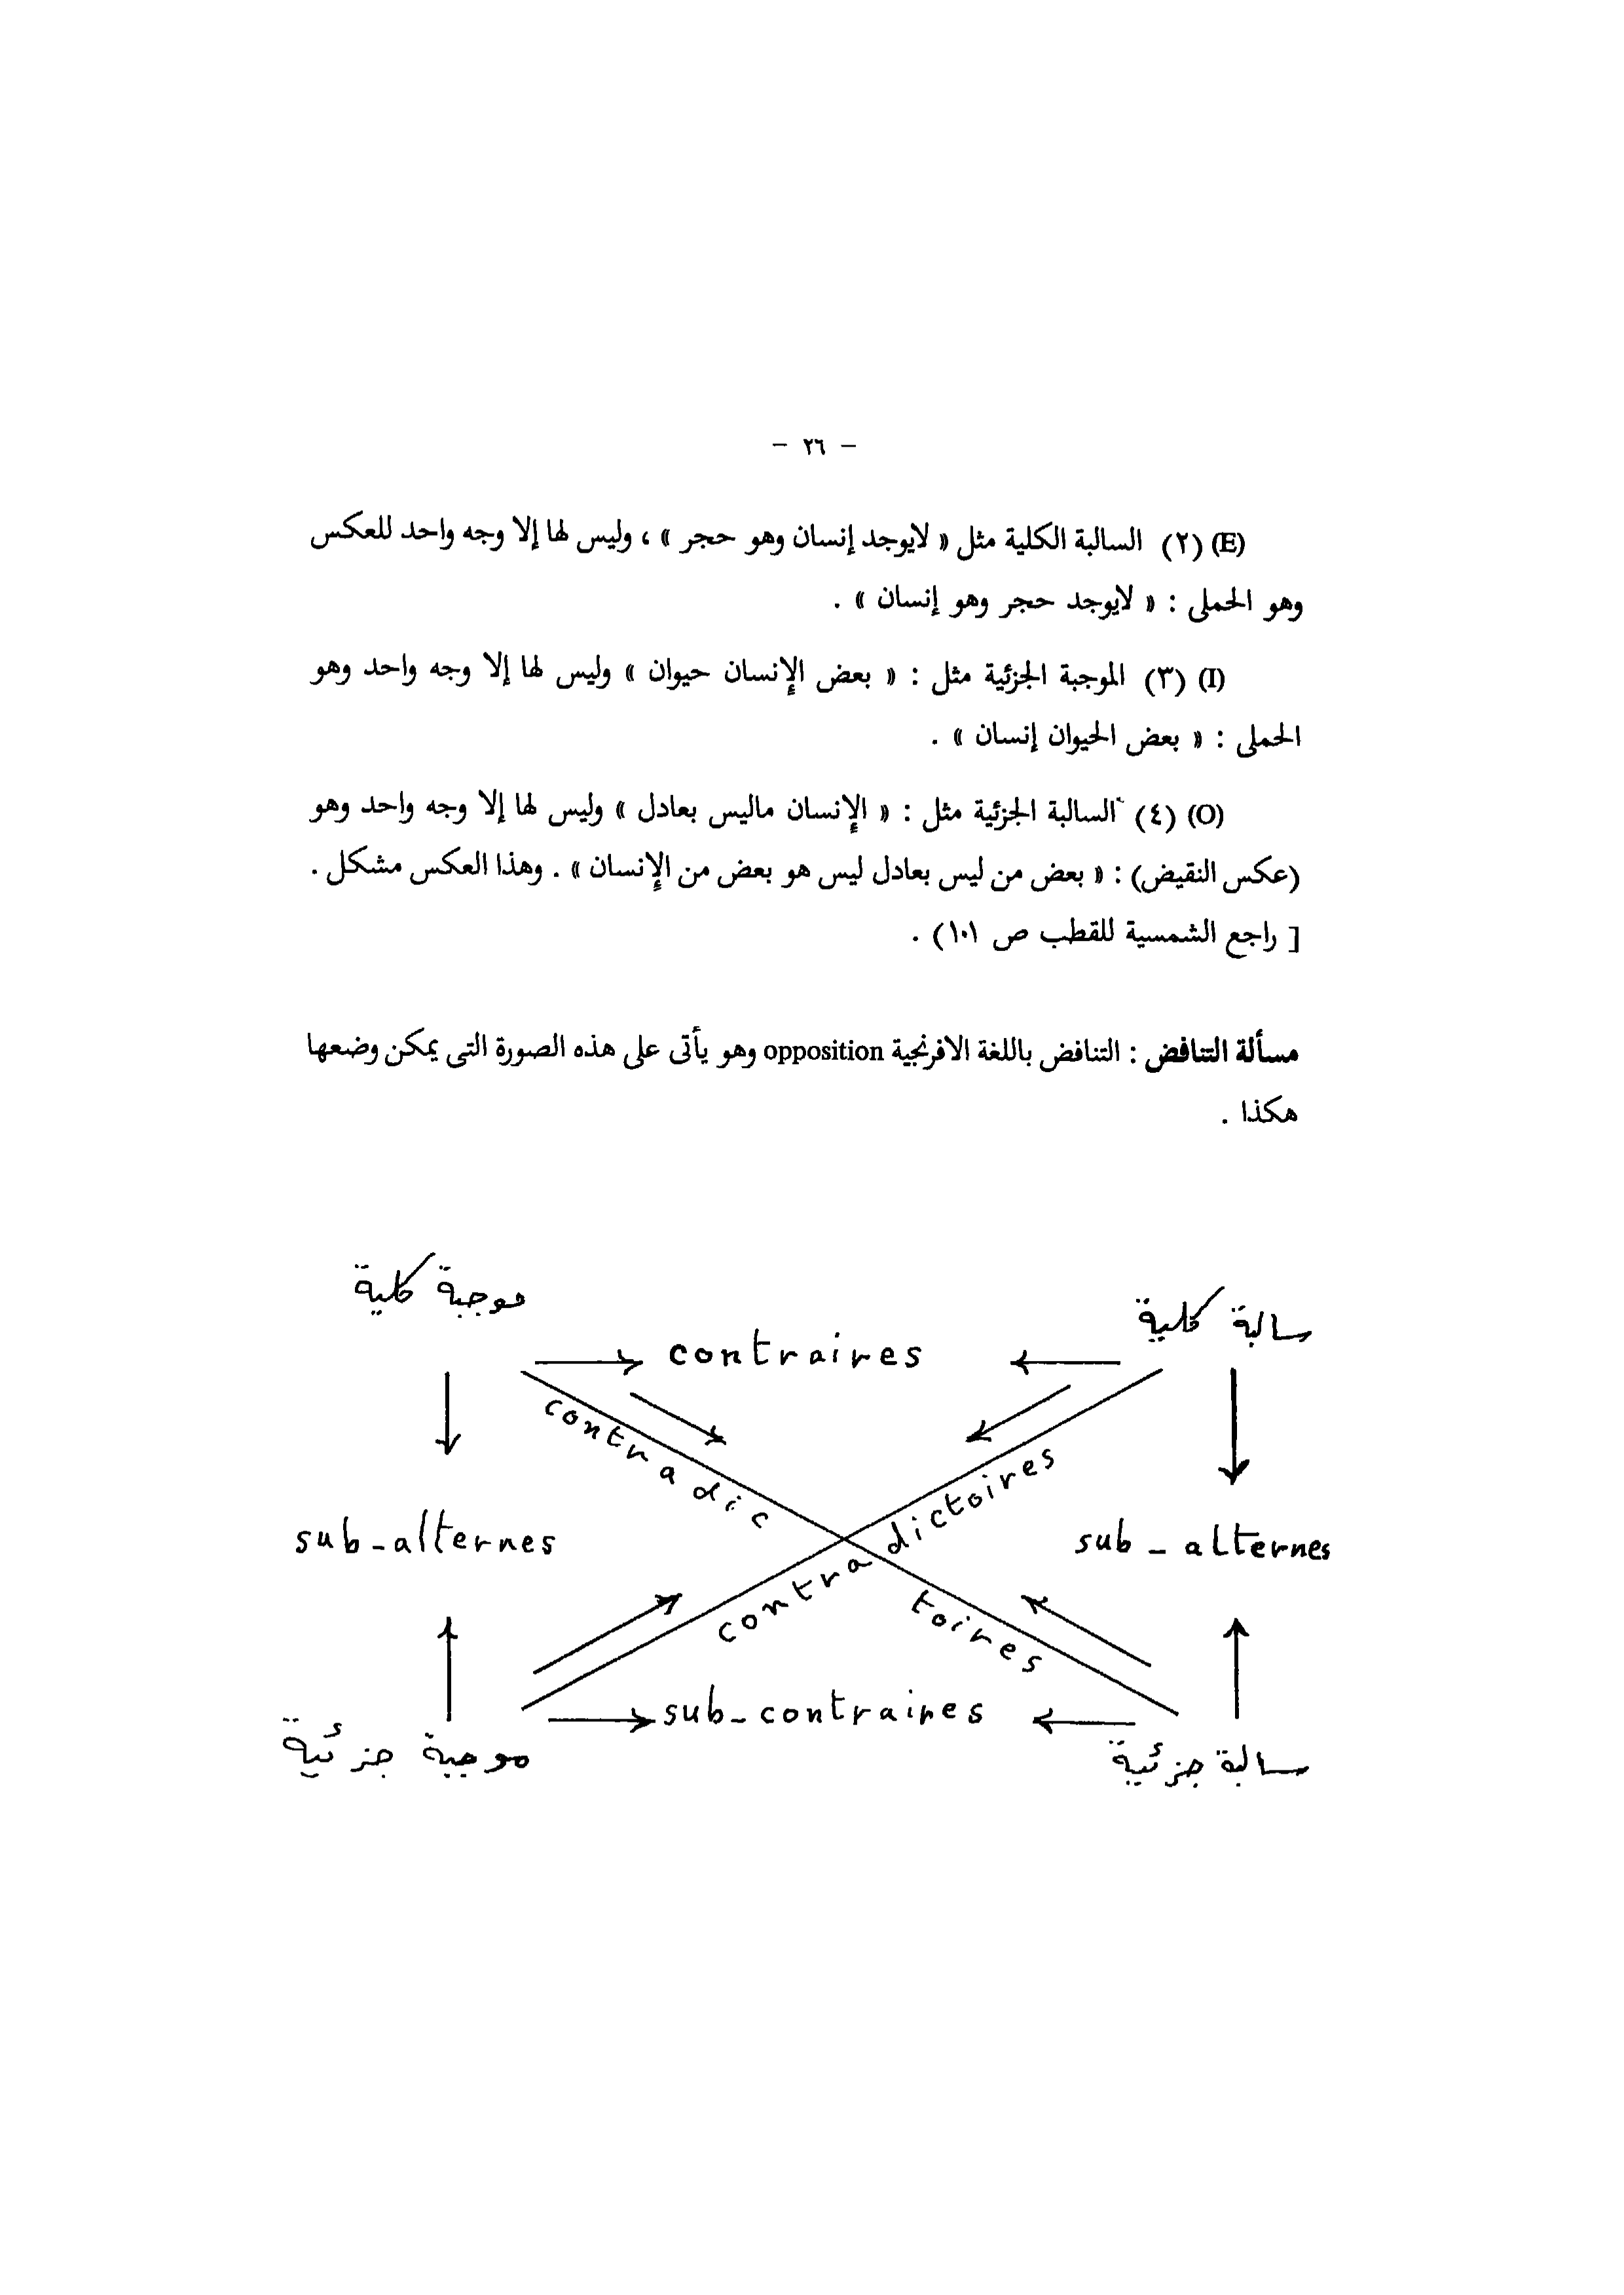 – ٢٦ –
(E) (٢) السالبة الكلية مثل « لايوجد إنسان وهو حجر » ، وليس لها إلا وجه واحد للعكس
وهو الحملى : « لايوجد حجر وهو إنسان » .
(I) (٣) الموجبة الجزئية مثل : « بعض الإنسان حيوان » وليس لها إلا وجه واحد وهو
الحملى : « بعض الحيوان إنسان » .
(O) (٤) السالبة الجزئية مثل : « الإنسان ماليس بعادل » وليس لها إلا وجه واحد وهو
(عكس النقيض) : « بعض من ليس بعادل ليس هو بعض من الإنسان » . وهذا العكس مشكل .
[ راجع الشمسية للقطب ص ١٠١) .
مسألة التنافض : التنافض باللغة الافرنجية opposition وهو يأتى على هذه الصورة التى يمكن وضعها
هكذا .
موجبة كلية
سالبة كلية
contraires
contradic
contradictoires
sub-alternes
sub-alternes
toires
sub-contraires
موجبة جزئية
سالبة جزئية